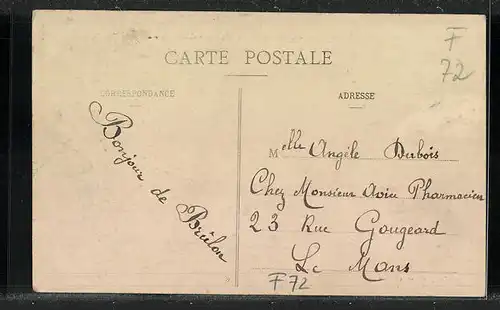 CARTE POSTALE
F
72
CORRESPONDANCE
ADRESSE
Bonjour de Brûlon
Melle Angèle Dubois
Chez Monsieur Avice Pharmacien
23 Rue Gougeard
Le Mans
F72